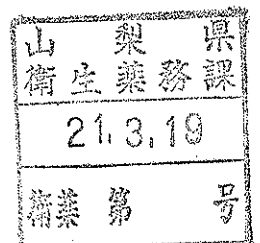 山梨県
衛生薬務課
21.3.19
衛薬第 号